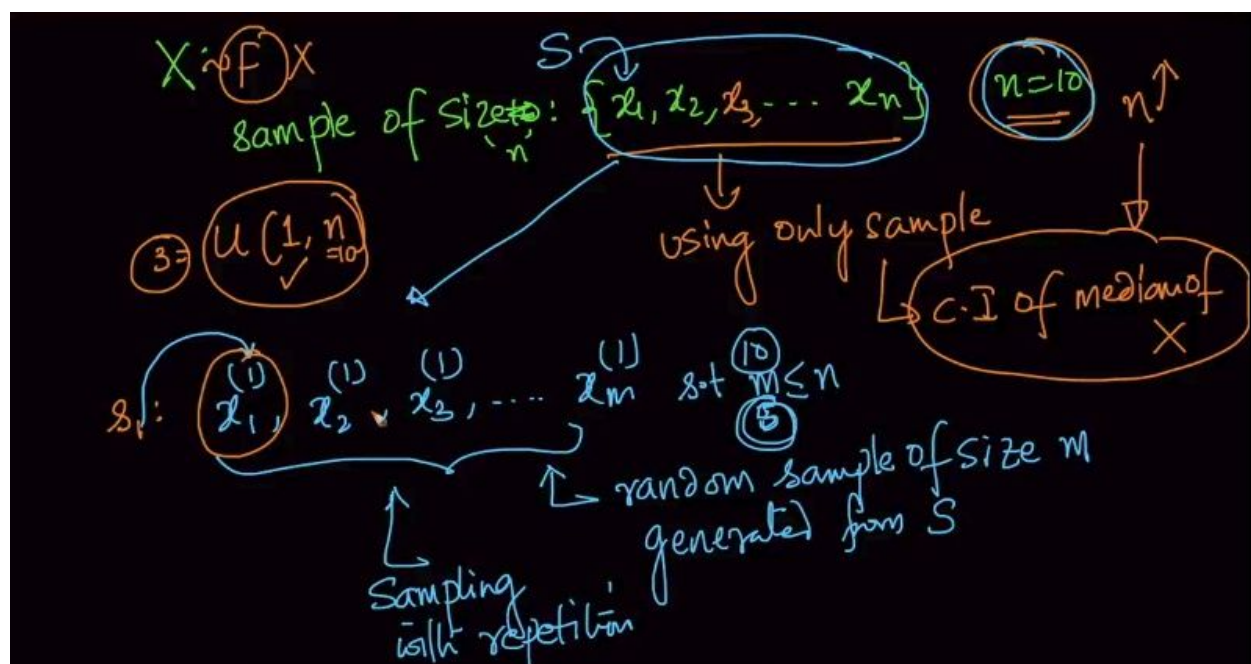 X ~ F X
S
sample of size 'n' : { x₁, x₂, x₃, .... xₙ }
n=10
n↑
3= U(1, n
=10
using only sample
C.I of median of
X
s₁: x₁⁽¹⁾, x₂⁽¹⁾, x₃⁽¹⁾, .... xₘ⁽¹⁾ s.t m ≤ n
10
5
random sample of size m
generated from S
Sampling
with repetition